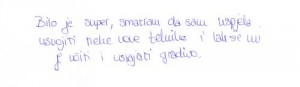 Bilo je super, smatram da sam uspjela
usvojiti neke nove tehnike i lakše mi
je učiti i usvajati gradivo.